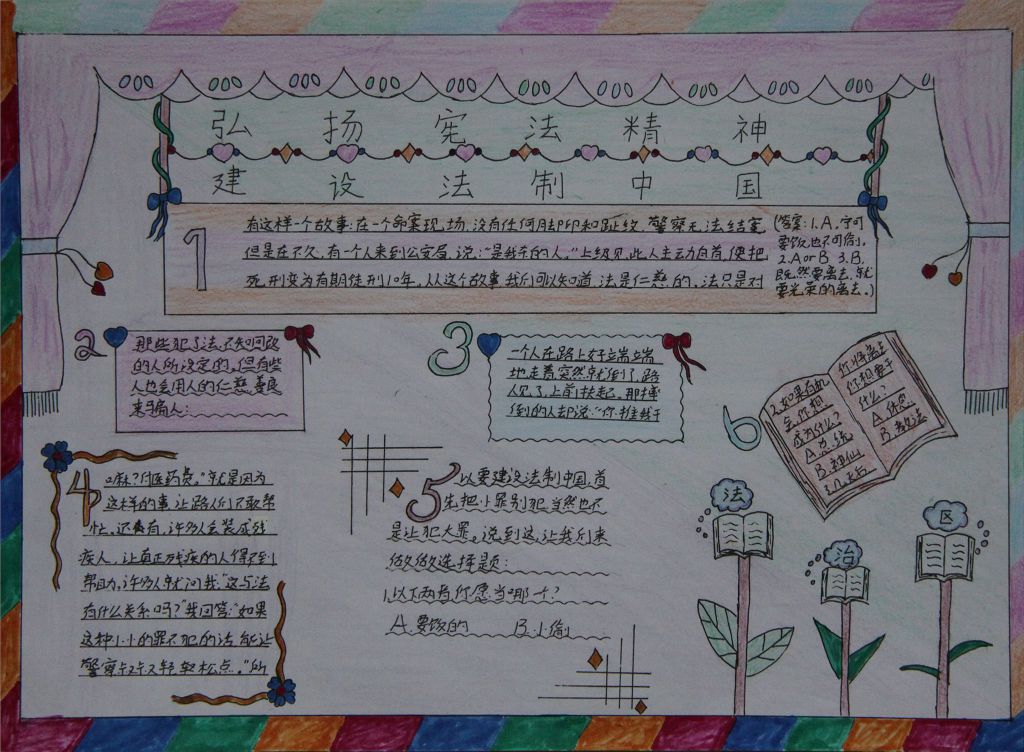 弘扬宪法精神
建设法制中国
1
有这样一个故事:在一个命案现场,没有任何脚印和踪纹,警察无法结案,
但是在不久,有一个人来到公安局,说:"是我杀的人。"上级见此人主动自首,便把
死刑变为有期徒刑10年,从这个故事我们可以知道,法是仁慈的,法只是对
(答案:1.A,宁可
要饭,也不可偷,
2.A or B 3.B,
既然要离去,就
要光荣的离去。)
2
那些犯了法,不知回改
的人所设定的,但有些
人也会用人的仁慈,善良
来骗人:
3
一个人在路上好端端
地走着,突然就倒了,路
人见了,上前扶起,那摔
倒的人却说:"你推我干
4
嘛?付医药费。"就是因为
这样的事,让路人们不敢帮
忙,还有,许多人会装成残
疾人,让真正残疾的人得不到
帮助,许多人就问我:"这与法
有什么关系吗?"我回答:"如果
这种小小的罪不犯的话,能让
警察叔叔轻轻松点。"所
5
以要建设法制中国,首
先把小罪别犯,当然也不
是让犯大罪。说到这,让我们来
做做选择题:
1.以下两者你愿当哪个?
A.要饭的 B.小偷
6
2.如果有机
会,你想
成为什么?
A.总统
B.神仙
你将离去
你想要干
什么?
A.
B.
法
治
区